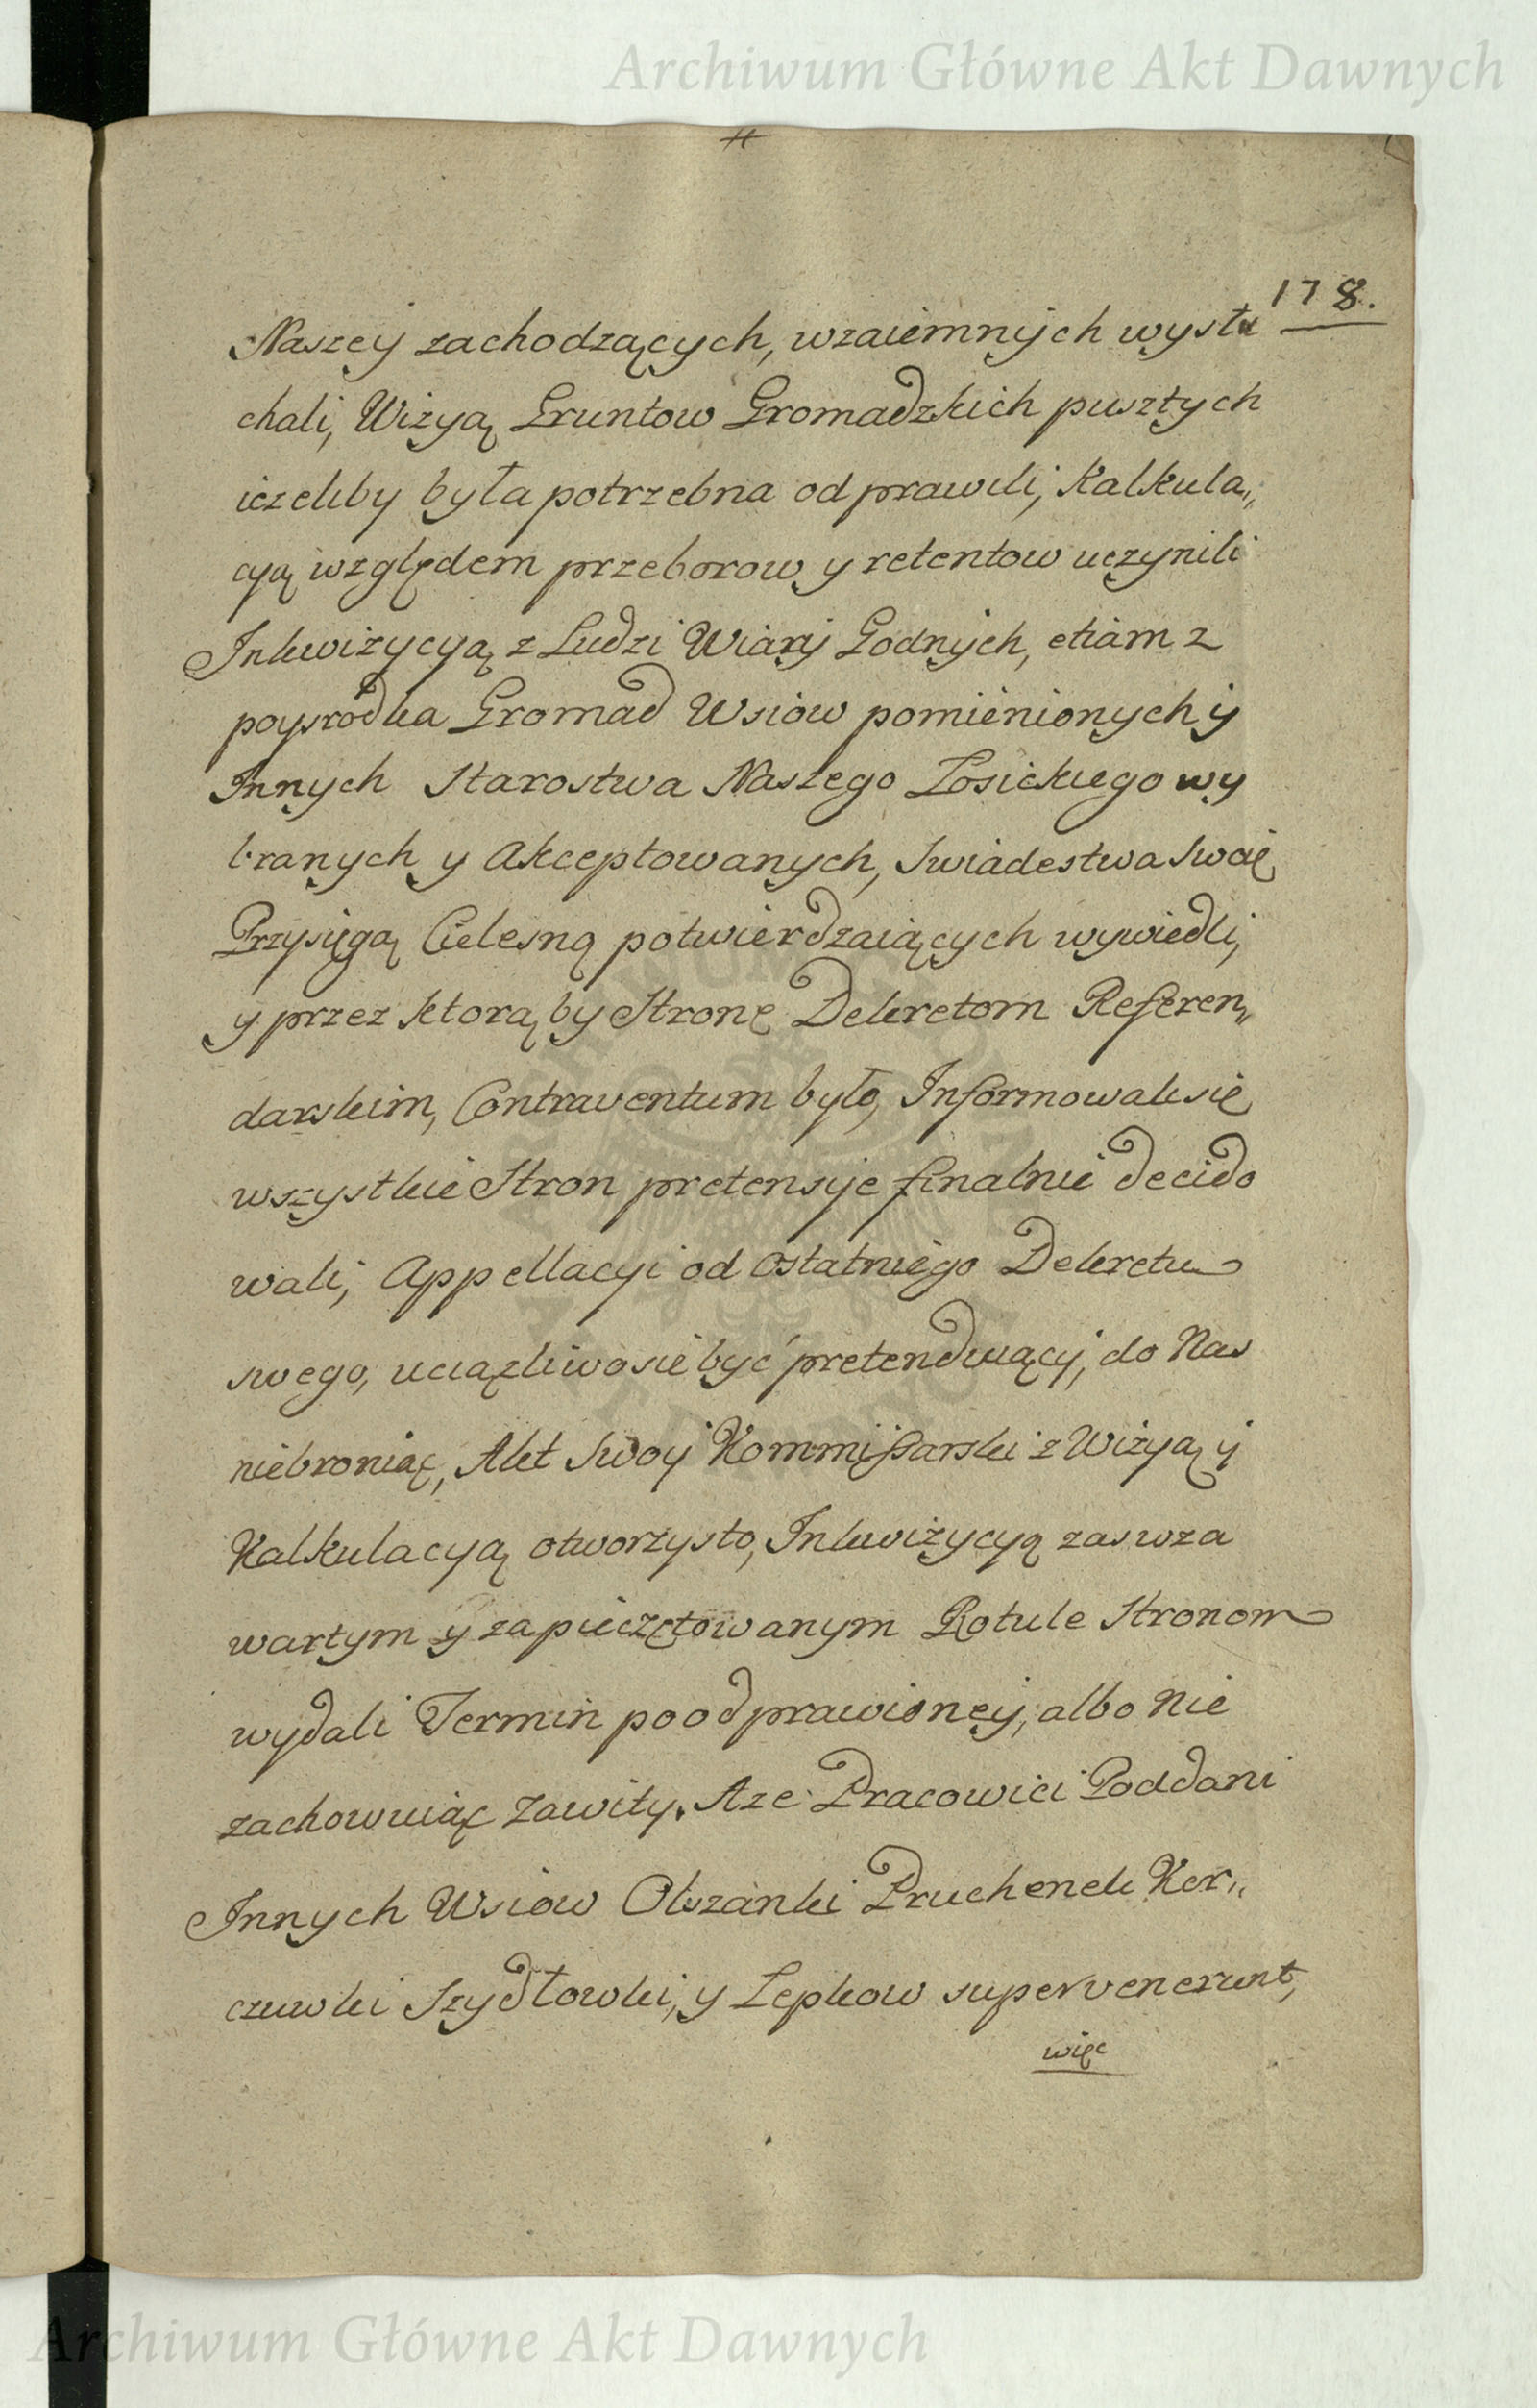 Archiwum Główne Akt Dawnych
178.
Naszey zachodzących, wzaiemnych wysłu
chali, Wizyą Gruntow Gromadzkich pustych
ieżeliby była potrzebna odprawili, Kalkula„
cyą względem przeborow y retentow uczynili
Inkwizycyą z Ludzi Wiary Godnych, etiam z
poysrodka Gromad Wsiow pomienionych y
Innych Starostwa Naszego Łosickiego wy
branych y Akceptowanych, Swiadestwa Swoie
Przysięgą Cielesną potwierdzaiących wywiedli,
y przez ktorą by Stronę Dekretom Referen„
darskim, Contraventum było, Informowali się
wszystkie Stron pretensye finalnie decido
wali, Appellacyi od Ostatniego Dekretu
swego, uciązliwosie być pretenduiący, do Nas
niebroniąc, Akt Swoy Kommissarski z Wizyą y
Kalkulacyą otworzysto, Inkwizycyą zas w za
wartym y zapieczętowanym Rotule Stronom
wydali Termin po odprawioney, albo nie
zachowuiąc Zawity. Aże Pracowici Poddani
Innych Wsiow Olszanki Pruchenek Kor„
czuwki Szydłowki, y Lepkow supervenerunt,
więc
Archiwum Główne Akt Dawnych